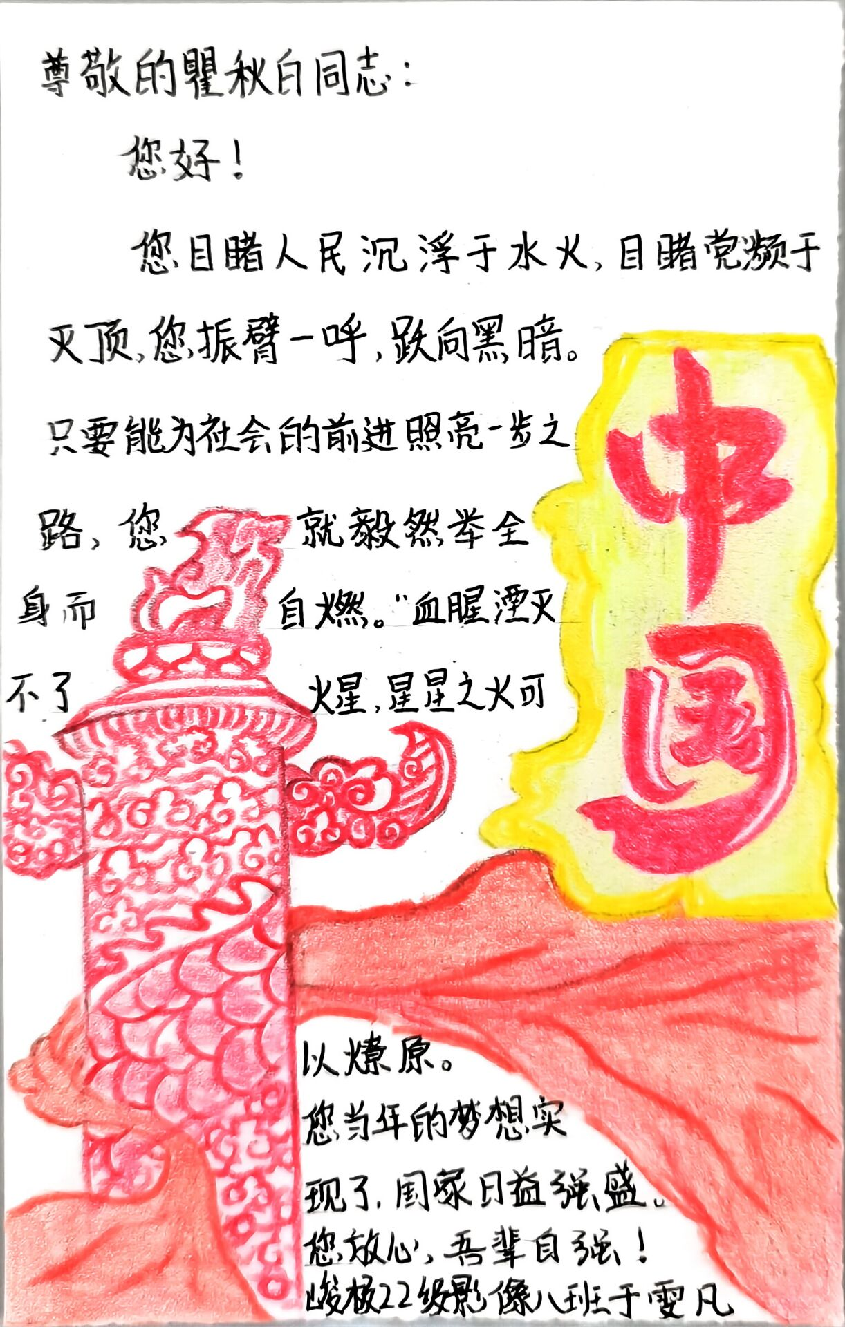 尊敬的瞿秋白同志：
您好！
您目睹人民沉浮于水火，目睹党濒于
灭顶，您振臂一呼，跃向黑暗。
只要能为社会的前进照亮一步之
路，您就毅然举全
身而自燃。“血腥湮灭
不了火星，星星之火可
以燎原。
您当年的梦想实
现了，国家日益强盛。
您放心，吾辈自强！
峻极22级影像八班于雯凡
中国